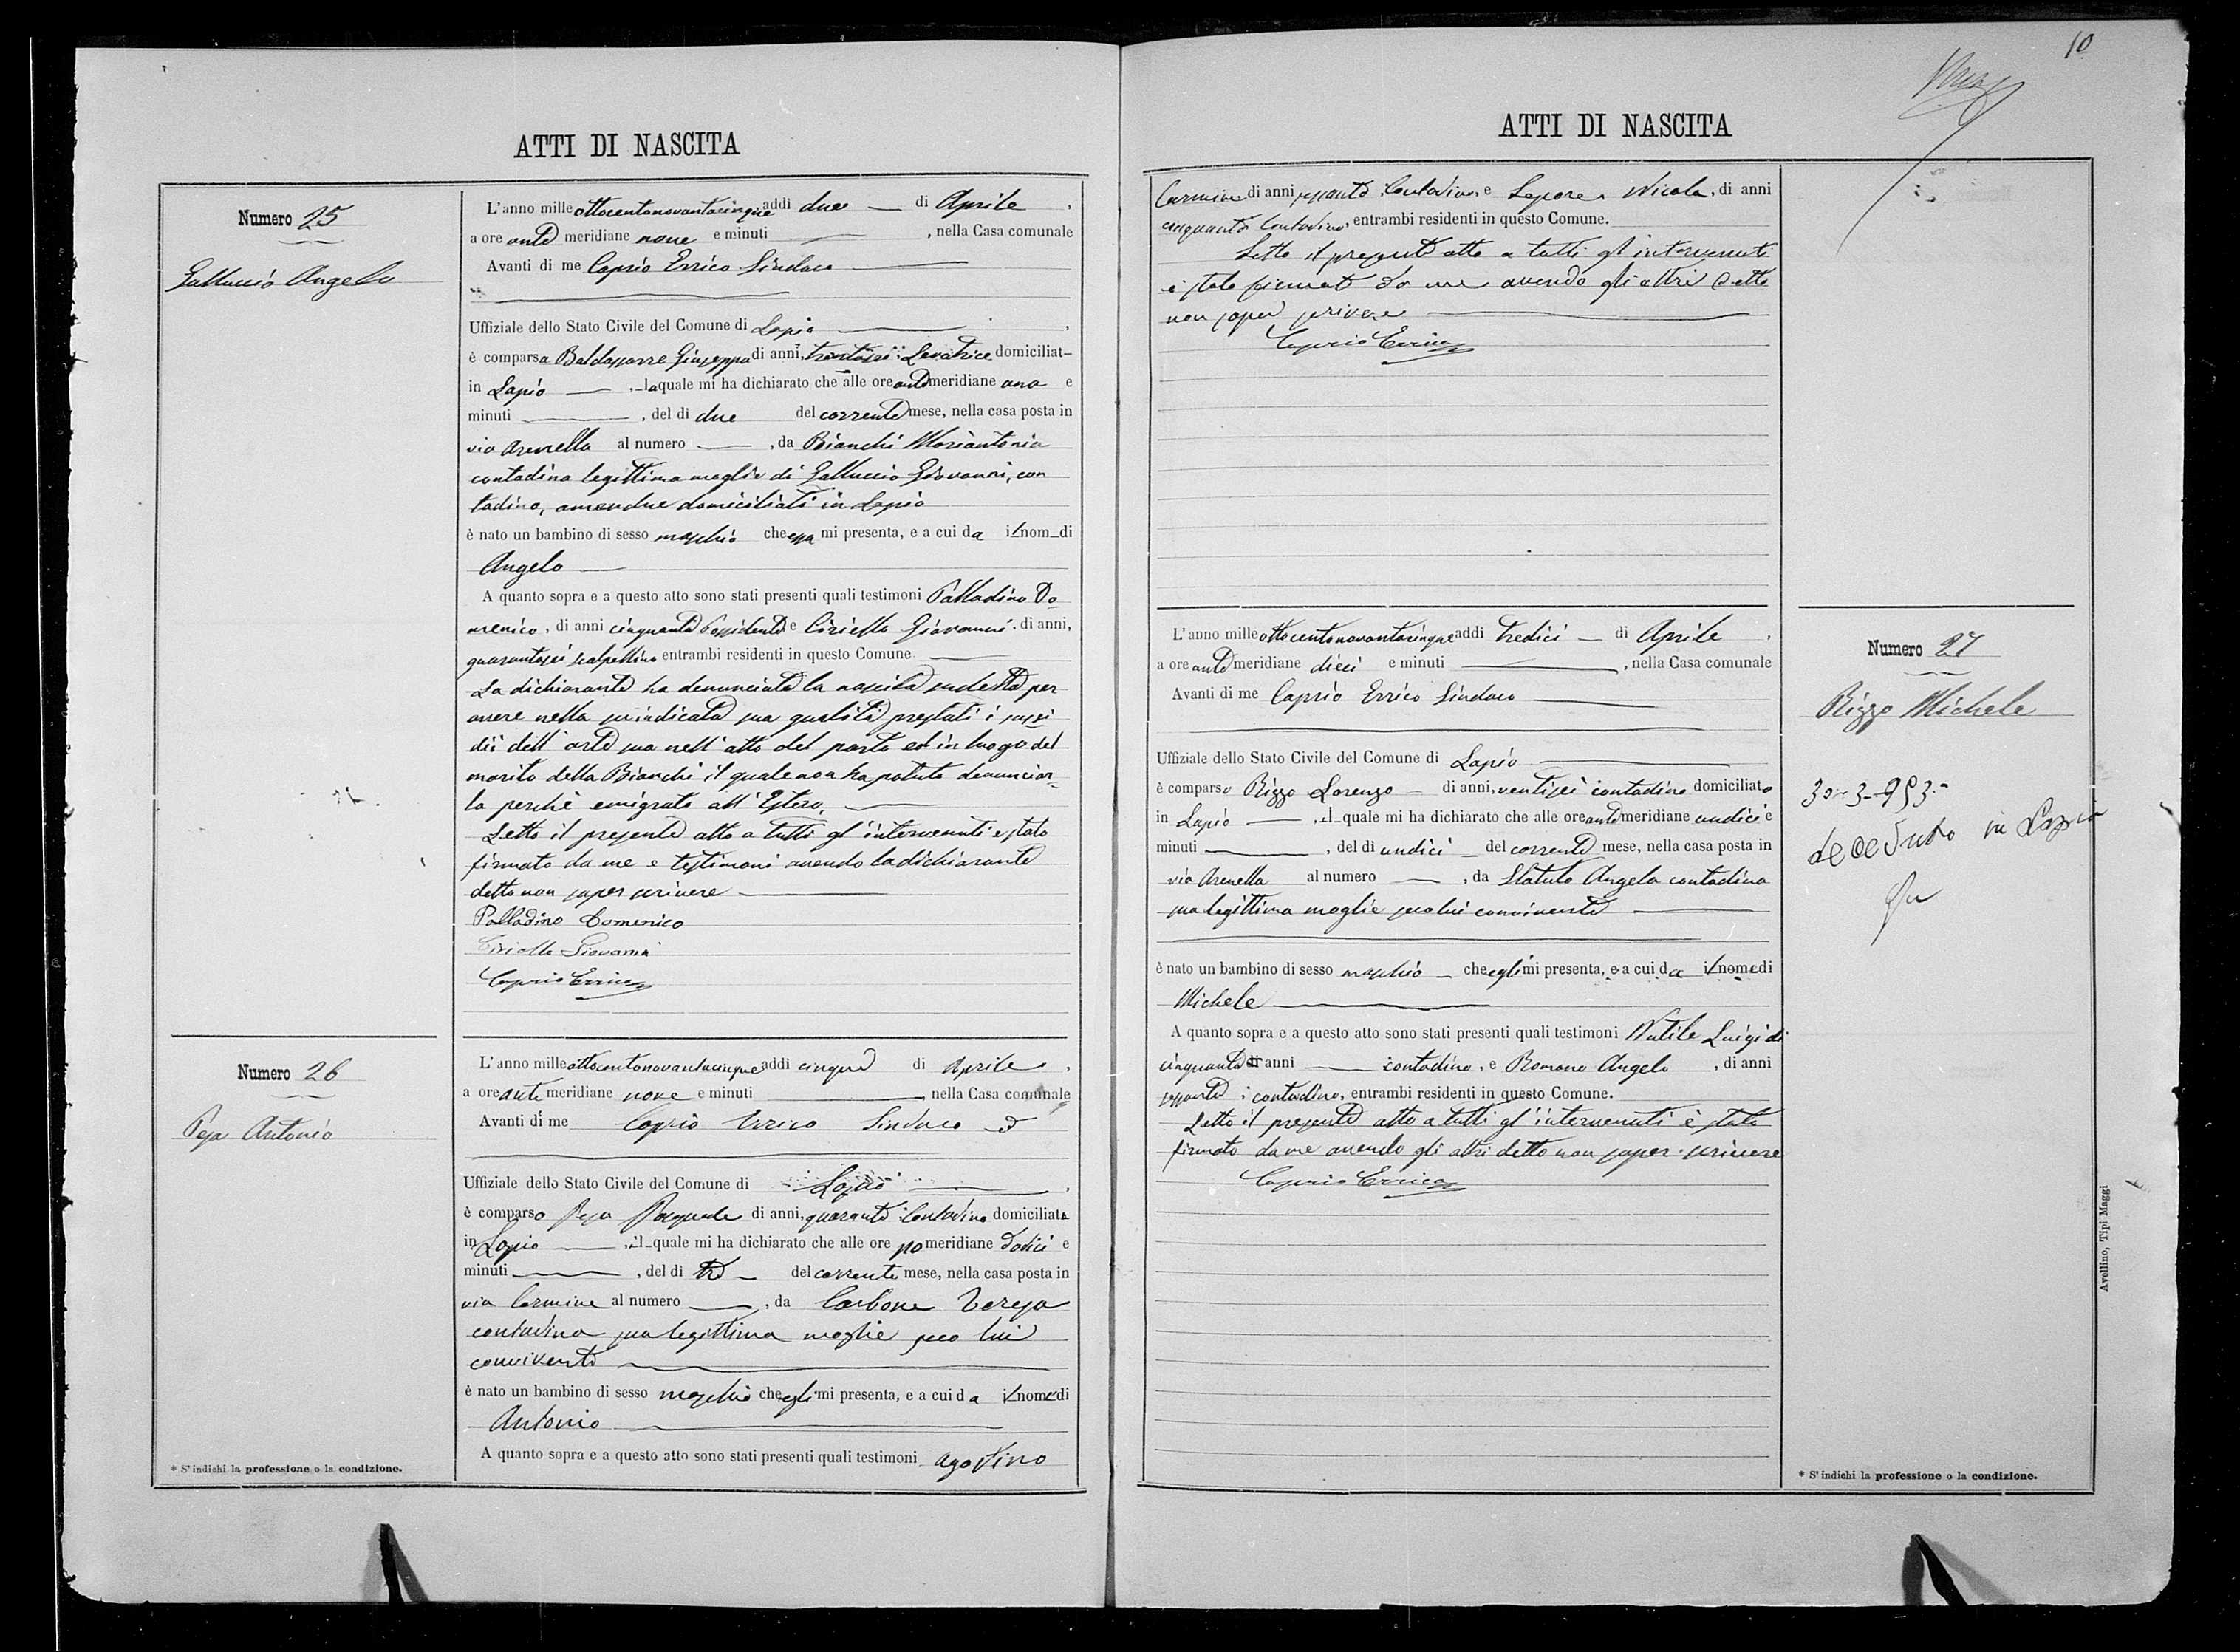 ATTI DI NASCITA
Numero 25
Galluccio Angelo
L'anno mille ottocentonovantacinque addì due di Aprile,
a ore ante meridiane nove e minuti , nella Casa comunale
Avanti di me Caprio Errico Sindaco
Uffiziale dello Stato Civile del Comune di Lapio,
è comparsa Baldassarre Giuseppa di anni, trentasei Levatrice domiciliat
in Lapio, la quale mi ha dichiarato che alle ore ante meridiane una e
minuti , del dì due del corrente mese, nella casa posta in
via Arenella al numero , da Bianchi Mariantonia
contadina legittima moglie di Galluccio Giovanni, con
tadino, amendue domiciliati in Lapio
è nato un bambino di sesso maschio che essa mi presenta, e a cui da il nom di
Angelo
A quanto sopra e a questo atto sono stati presenti quali testimoni Palladino Do
menico, di anni cinquanta Possidente e Ciriello Giovanni, di anni,
quarantasei scalpellino entrambi residenti in questo Comune
La dichiarante ha denunciato la nascita sudetta per
avere nella suindicata sua qualità prestati i sussi
dii dell'arte sua nell'atto del parto ed in luogo del
marito della Bianchi il quale non ha potuto denunciar
la perchè emigrato all'Estero.
Letto il presente atto a tutti gl'intervenuti è stato
firmato da me e testimoni avendo la dichiarante
detto non saper scrivere
Palladino Domenico
Ciriello Giovanni
Caprio Errico
Numero 26
Pepa Antonio
L'anno mille ottocentonovantacinque addì cinque di Aprile,
a ore ante meridiane nove e minuti , nella Casa comunale
Avanti di me Caprio Errico Sindaco
Uffiziale dello Stato Civile del Comune di Lapio,
è comparso Pepa Pasquale di anni, quaranta Contadino domiciliato
in Lapio, il quale mi ha dichiarato che alle ore po meridiane dodici e
minuti , del dì tre del corrente mese, nella casa posta in
via Carmine al numero , da Carbone Teresa
contadina sua legittima moglie seco lui
convivente
è nato un bambino di sesso maschio che egli mi presenta, e a cui da il nome di
Antonio
A quanto sopra e a questo atto sono stati presenti quali testimoni Agostino
* S'indichi la professione o la condizione.
10
ATTI DI NASCITA
Carmine di anni sessanta, Contadino, e Lepore Nicola, di anni
cinquanta Contadino, entrambi residenti in questo Comune.
Letto il presente atto a tutti gl'intervenuti
è stato firmato da me avendo gli altri detto
non saper scrivere
Caprio Errico
Numero 27
Rizzo Michele
30-3-953
deceduto in Lapio
L'anno mille ottocentonovantacinque addì tredici di Aprile,
a ore ante meridiane dieci e minuti , nella Casa comunale
Avanti di me Caprio Errico Sindaco
Uffiziale dello Stato Civile del Comune di Lapio
è comparso Rizzo Lorenzo di anni, ventisei contadino domiciliato
in Lapio, il quale mi ha dichiarato che alle ore ante meridiane undici e
minuti , del dì undici del corrente mese, nella casa posta in
via Arenella al numero , da Statuto Angela contadina
sua legittima moglie seco lui convivente
è nato un bambino di sesso maschio che egli mi presenta, e a cui da il nome di
Michele
A quanto sopra e a questo atto sono stati presenti quali testimoni Nutile Luigi di
cinquanta di anni contadino, e Romano Angelo, di anni
sessanta, contadino, entrambi residenti in questo Comune.
Letto il presente atto a tutti gl'intervenuti è stato
firmato da me avendo gli altri detto non saper scrivere
Caprio Errico
* S'indichi la professione o la condizione.
Avellino, Tipi Maggi